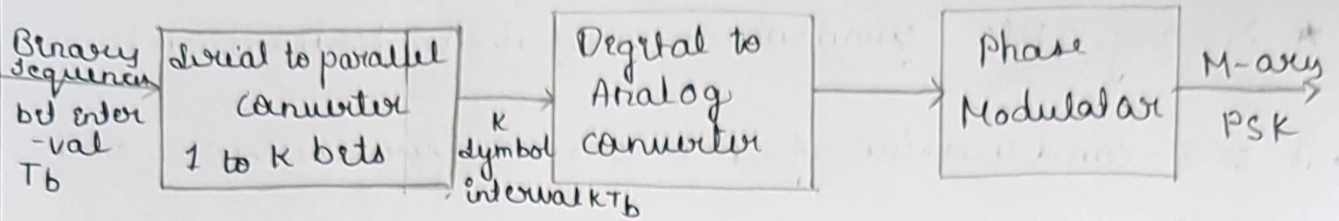 Binary
sequences
bit inter
-val
Tb
Serial to parallel
converter
1 to K bits
K
symbol
interval KTb
Digital to
Analog
converter
Phase
Modulator
M-ary
PSK